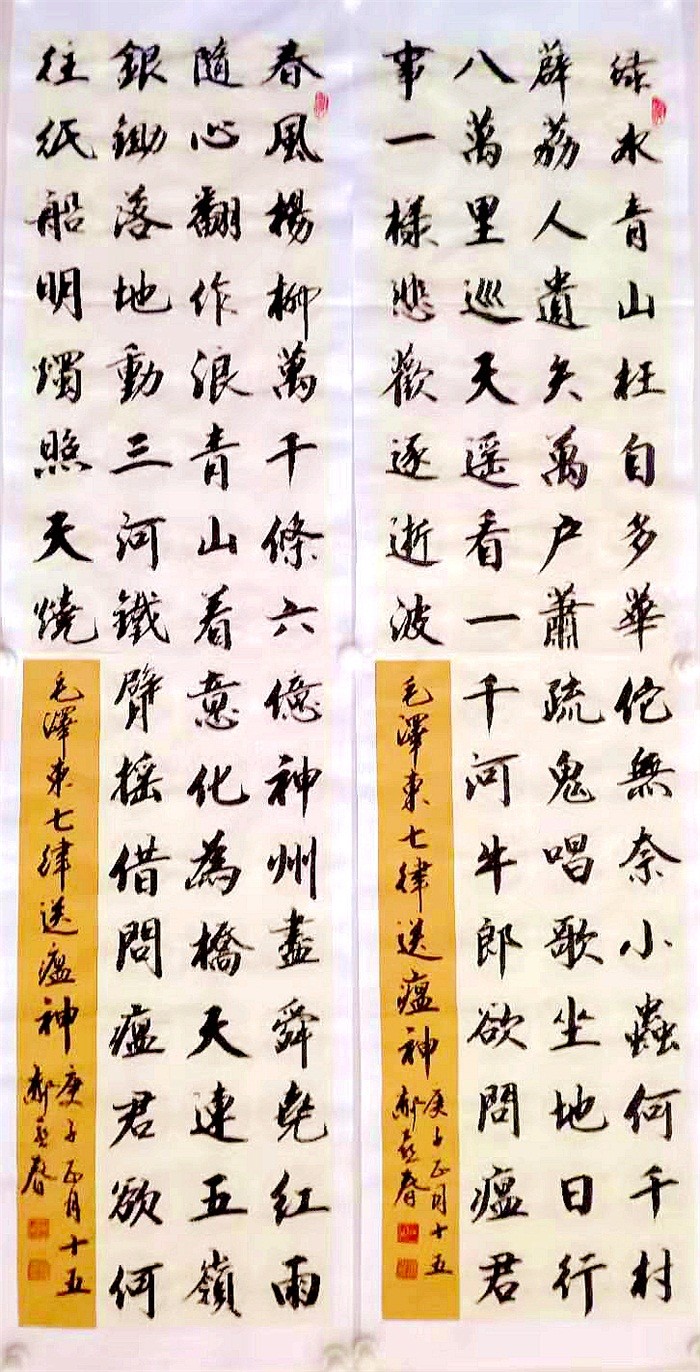 綠水青山枉自多華佗無奈小蟲何千村
薜荔人遺矢萬户蕭疏鬼唱歌坐地日行
八萬里巡天遥看一千河牛郎欲問瘟君
事一樣悲歡逐逝波
毛澤東七律送瘟神
庚子正月十五
春風楊柳萬千條六億神州盡舜堯紅雨
隨心翻作浪青山着意化為橋天連五嶺
銀鋤落地動三河鐵臂摇借問瘟君欲何
往紙船明燭照天燒
毛澤東七律送瘟神
庚子正月十五